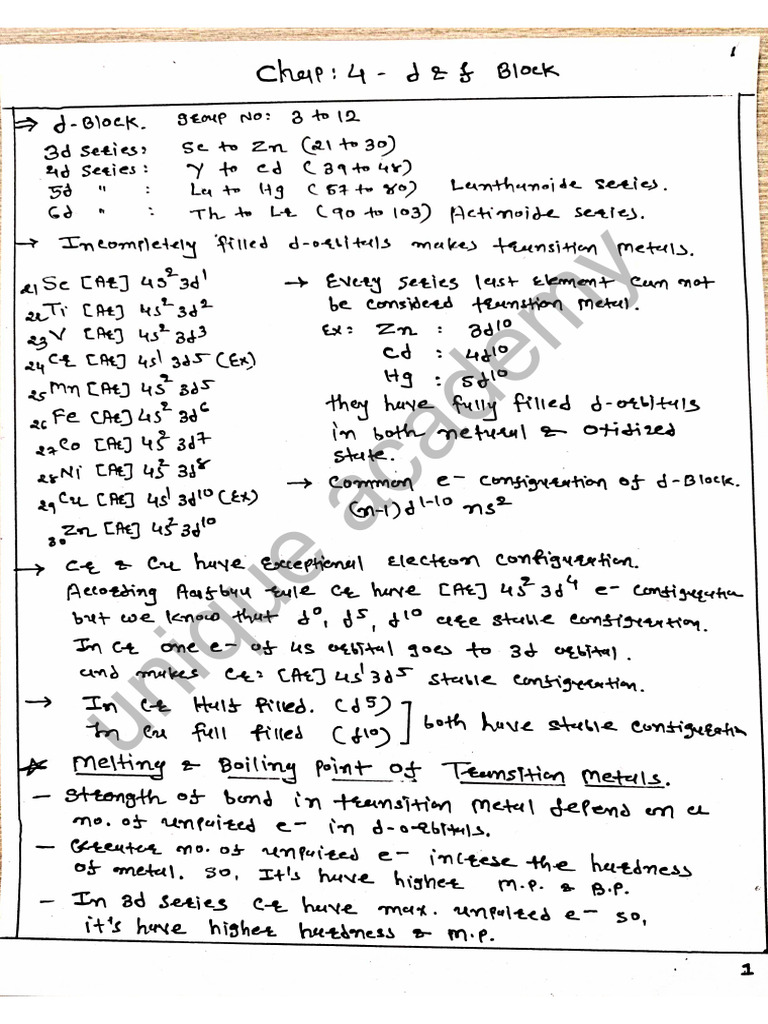 1
Chap: 4 - d & f Block
⇒ d-Block. Group No: 3 to 12
3d series: Sc to Zn (21 to 30)
4d series: Y to Cd (39 to 48)
5d " : La to Hg (57 to 80) Lanthanoide series.
6d " : Th to Lr (90 to 103) Actinoide series.
→ Incompletely filled d-orbitals makes transition metals.
21Sc [Ar] 4s² 3d¹
22Ti [Ar] 4s² 3d²
23V [Ar] 4s² 3d³
24Cr [Ar] 4s¹ 3d5 (Ex)
25Mn [Ar] 4s² 3d5
26Fe [Ar] 4s² 3d⁶
27Co [Ar] 4s² 3d7
28Ni [Ar] 4s² 3d⁸
29Cu [Ar] 4s¹ 3d¹⁰ (Ex)
30Zn [Ar] 4s² 3d¹⁰
→ Every series last element can not
be considered transtion metal.
Ex: Zn : 3d¹⁰
Cd : 4d¹⁰
Hg : 5d¹⁰
they have fully filled d-orbitals
in both netural & Otidized
state.
→ Common e- configuration of d-Block.
(n-1)d¹⁻¹⁰ ns²
→ Cr & Cu have Exceptional Electron configuration.
According Aufbau rule Cr have [Ar] 4s² 3d⁴ e- configuration
but we know that d⁰, d⁵, d¹⁰ are stable configuration.
In Cr one e- of 4s orbital goes to 3d orbital.
and makes Cr: [Ar] 4s¹ 3d⁵ stable configuration.
→ In Cr Half filled. (d⁵)
In Cu full filled (d¹⁰)
both have stable configuration
* Melting & Boiling Point of Transition Metals.
- Strength of bond in transition metal depend on a
no. of unpaired e- in d-orbitals.
- Greater no. of unpaired e- increse the hardness
of metal. so, It's have higher M.P. & B.P.
- In 3d series Cr have max. unpaired e- so,
it's have higher hardness & M.P.
1
unique academy